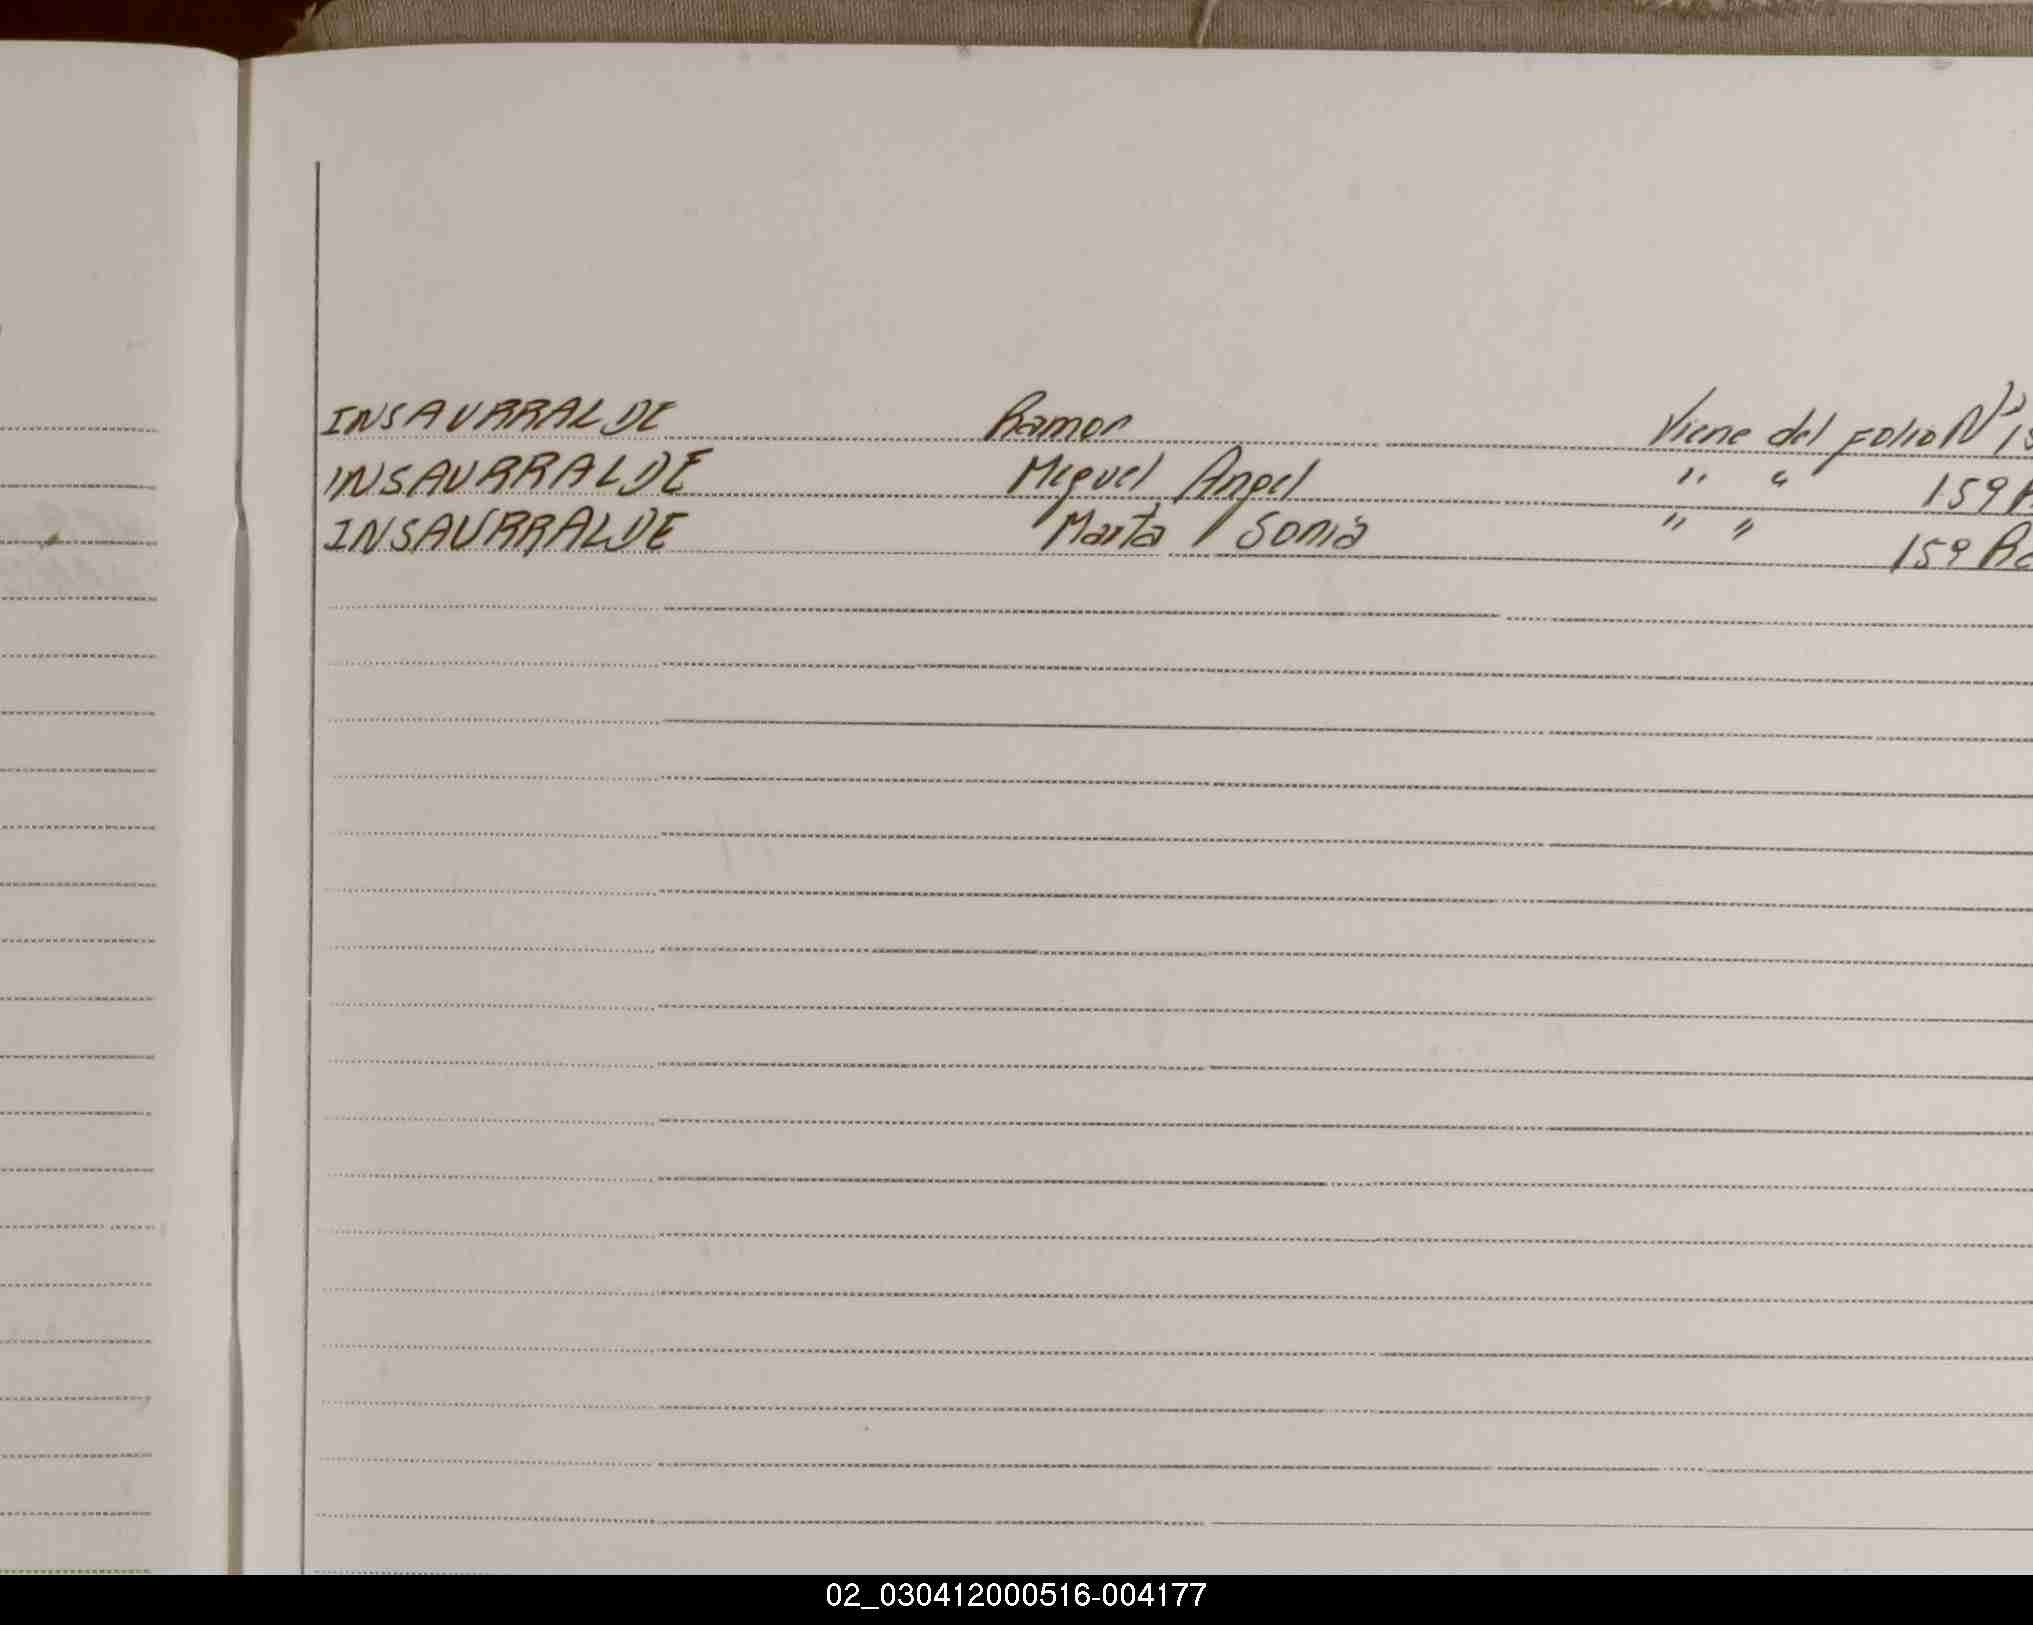 INSAURRALDE Ramon Viene del Folio Nº
INSAURRALDE Miguel Angel " " 159
INSAURRALDE Marta Sonia " " 159
02_030412000516-004177